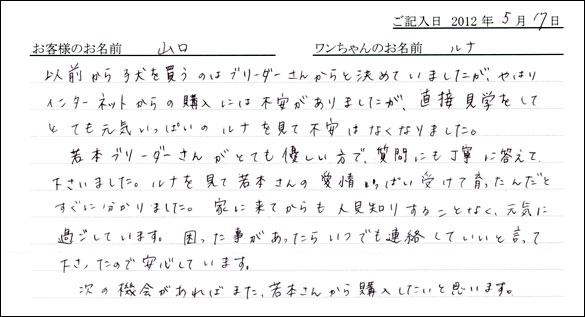 ご記入日 2012 年 5 月 17 日
お客様のお名前 山口 ワンちゃんのお名前 ルナ
以前から子犬を買うのはブリーダーさんからと決めていましたが、やはり
インターネットからの購入には不安がありましたが、直接見学をして
とても元気いっぱいのルナを見て不安はなくなりました。
若本ブリーダーさんがとても優しい方で、質問にも丁寧に答えて
下さいました。ルナを見て若本さんの愛情いっぱい受けて育ったんだと
すぐに分かりました。家に来てからも人見知りすることなく、元気に
過ごしています。困った事があったらいつでも連絡していいと言って
下さったので安心しています。
次の機会があればまた、若本さんから購入したいと思います。